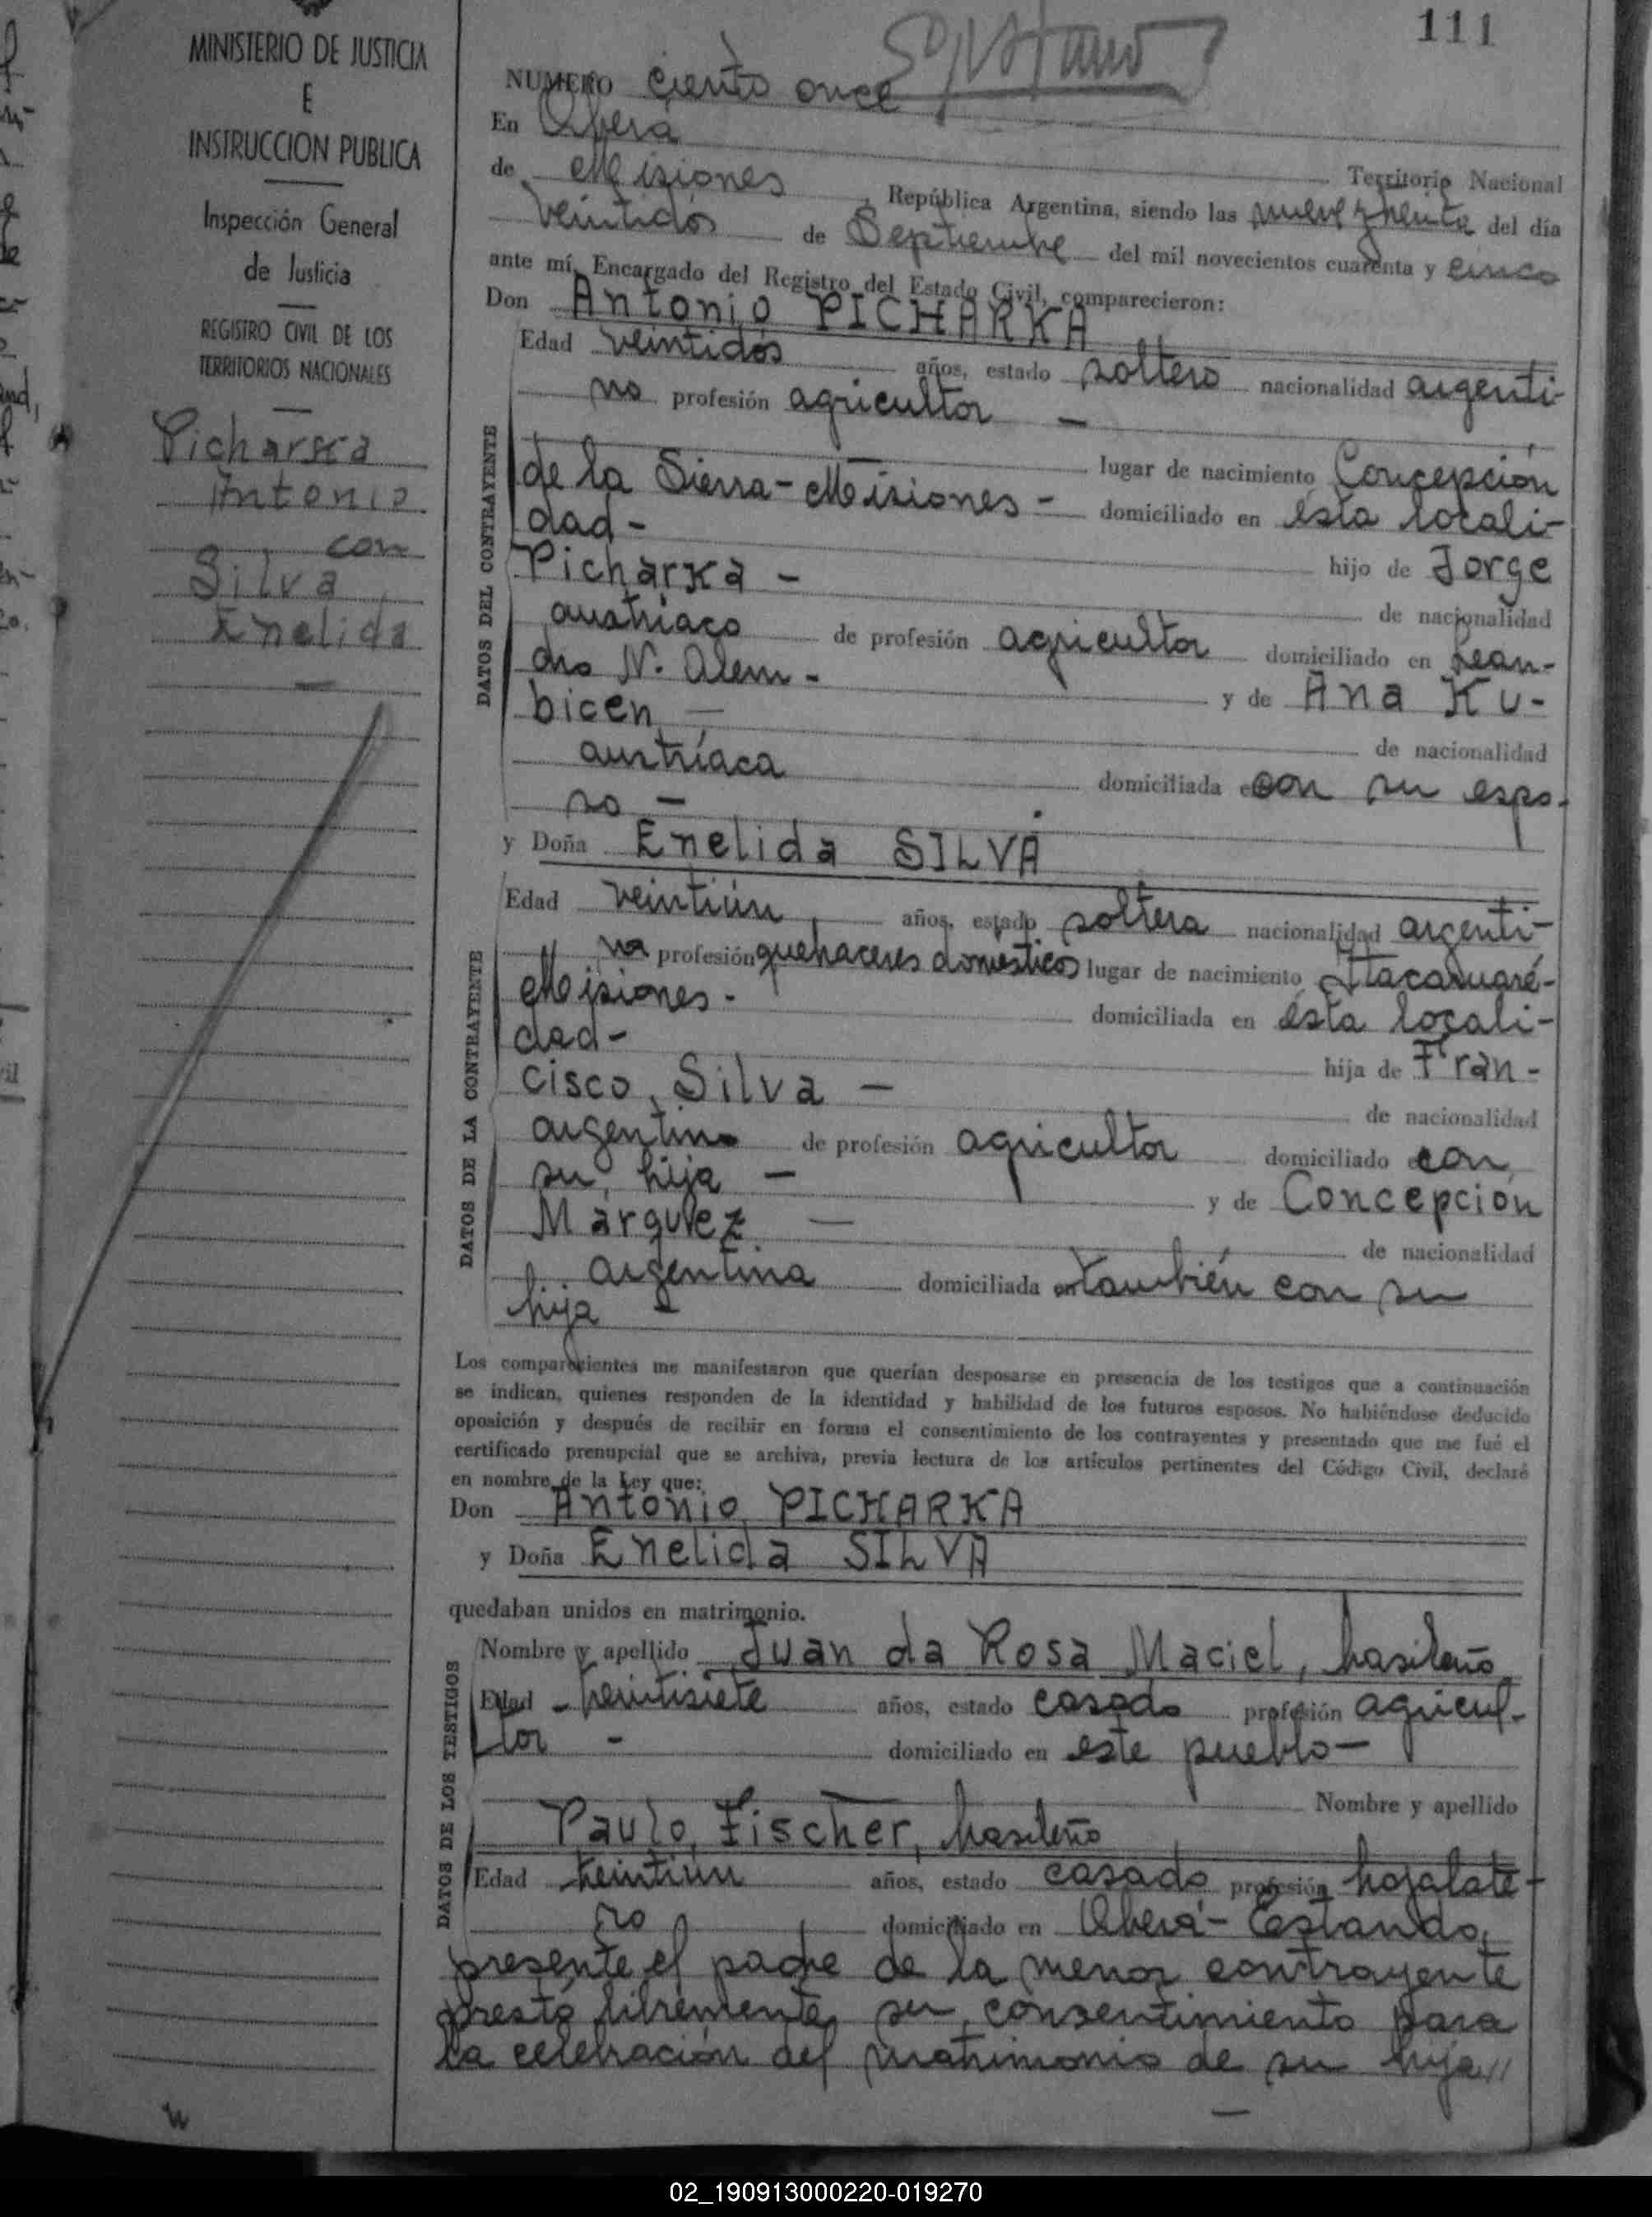 111
MINISTERIO DE JUSTICIA
E
INSTRUCCION PUBLICA
Inspección General
de Justicia
REGISTRO CIVIL DE LOS
TERRITORIOS NACIONALES
Picharka
Antonio
con
Silva
Enelida
NUMERO ciento once
En Oberá
Territorio Nacional
de Misiones, República Argentina, siendo las nueve y treinta del día
veintidos de Septiembre del mil novecientos cuarenta y cinco
ante mí, Encargado del Registro del Estado Civil, comparecieron:
Don Antonio PICHARKA
DATOS DEL CONTRAYENTE
Edad veintidós años, estado soltero nacionalidad argenti-
no profesión agricultor -
lugar de nacimiento Concepción
de la Sierra - Misiones - domiciliado en ésta locali-
dad -
hijo de Jorge
Picharka -
de nacionalidad
austríaco de profesión agricultor domiciliado en Lean-
dro N. Alem -
y de Ana Ku-
bicen -
de nacionalidad
austríaca domiciliada con su espo-
so -
y Doña Enelida SILVA
DATOS DE LA CONTRAYENTE
Edad veintiún años, estado soltera nacionalidad argenti-
na profesión quehaceres domésticos lugar de nacimiento Itacaruaré-
Misiones - domiciliada en ésta locali-
dad -
hija de Fran-
cisco Silva -
de nacionalidad
argentino de profesión agricultor domiciliado con
su hija -
y de Concepción
Marquez -
de nacionalidad
argentina domiciliada en también con su
hija -
Los comparecientes me manifestaron que querían desposarse en presencia de los testigos que a continuación
se indican, quienes responden de la identidad y habilidad de los futuros esposos. No habiéndose deducido
oposición y después de recibir en forma el consentimiento de los contrayentes y presentado que me fué el
certificado prenupcial que se archiva, previa lectura de los artículos pertinentes del Código Civil, declaré
en nombre de la Ley que:
Don Antonio PICHARKA
y Doña Enelida SILVA
quedaban unidos en matrimonio.
DATOS DE LOS TESTIGOS
Nombre y apellido Juan da Rosa Maciel, brasileño
Edad veintisiete años, estado casado profesión agricul-
tor - domiciliado en este pueblo -
Nombre y apellido
Paulo Fischer, brasileño
Edad veintiún años, estado casado profesión hojalate-
ro domiciliado en Oberá - Estando
presente el padre de la menor contrayente
prestó libremente su consentimiento para
la celebración del matrimonio de su hija //
02_190913000220-019270